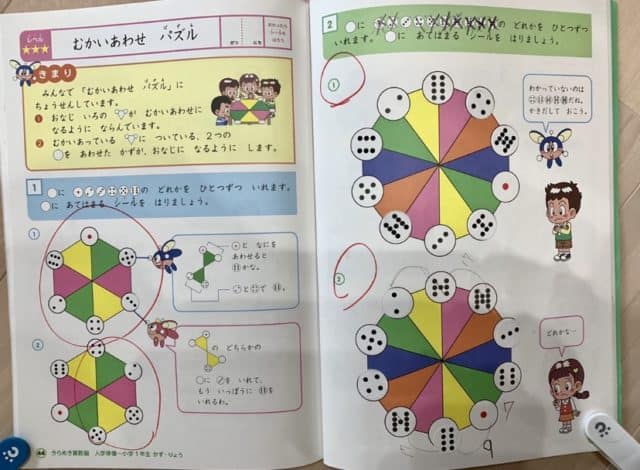 レベル
★★★
むかいあわせ パズル
パズル
きまり
みんなで 「むかいあわせ パズル」に
ちょうせんしています。
1 おなじ いろの が むかいあわせに
なるように ならんでいます。
2 むかいあっている に ついている、2つの
を あわせた かずが、おなじに なるように します。
1 に の どれかを ひとつずつ いれます。
に あてはまる シールを はりましょう。
①
と なにを
あわせると
かな。
と で 。
②
の どちらかの
に を いれて、
もう いっぽうに を
いれるわ。
44 きらめき算数脳 入学準備〜小学1年生 かず・りょう
2 に の どれかを ひとつずつ
いれます。 に あてはまる シールを はりましょう。
①
わかっていないのは
だね。
かきだして おこう。
②
どれかな…
7
9